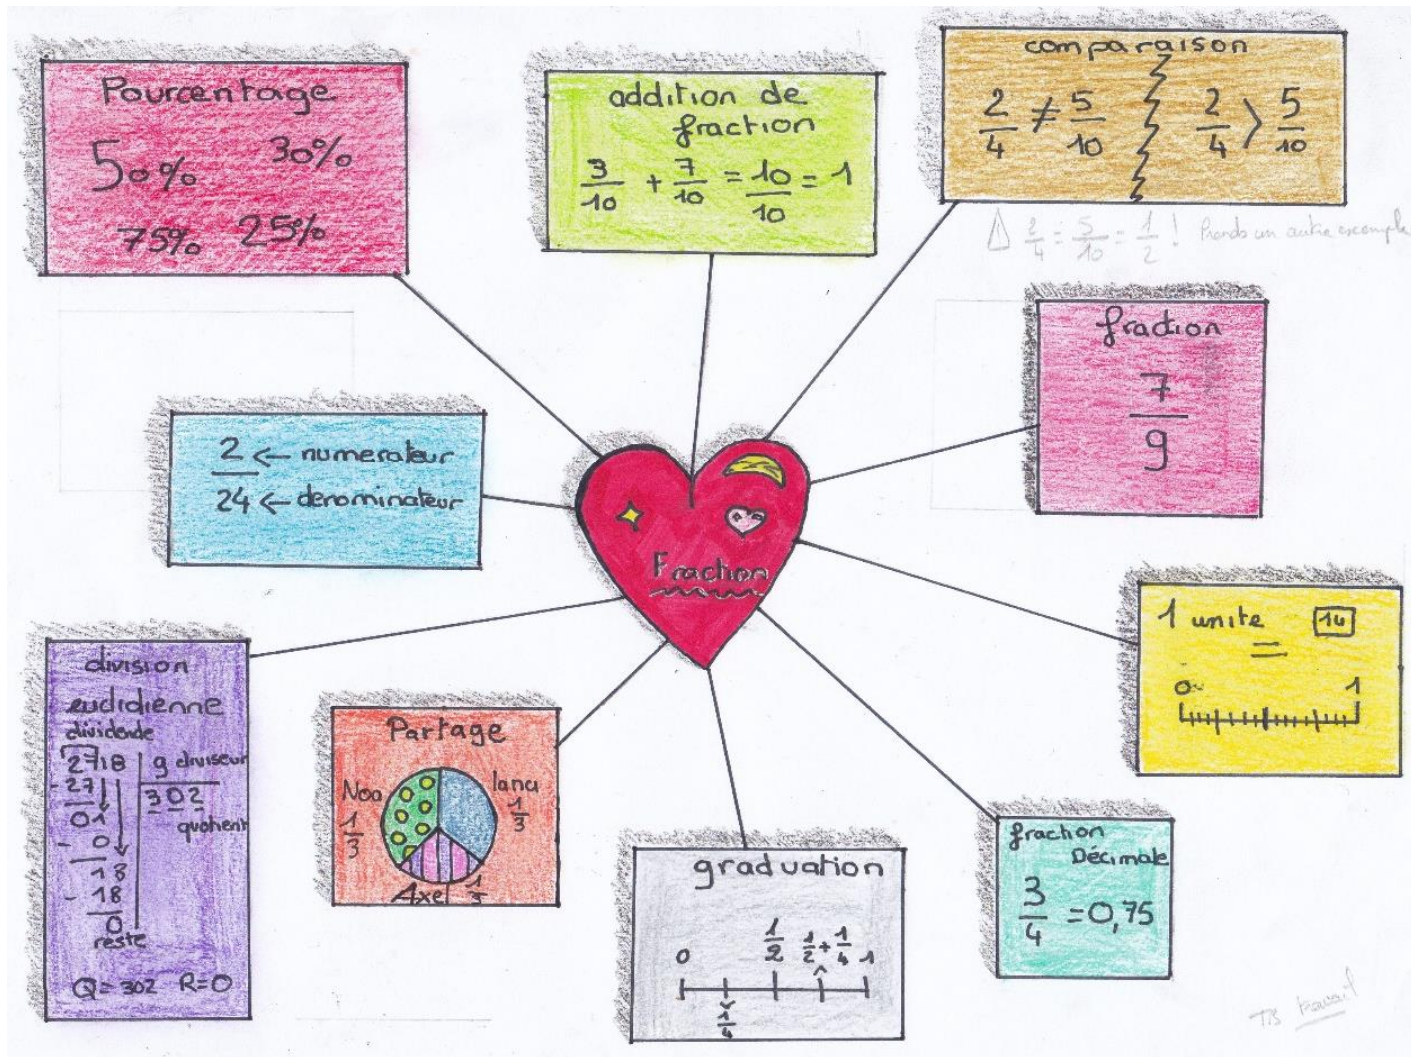 Pourcentage
50% 30%
75% 25%
addition de
fraction
3/10 + 7/10 = 10/10 = 1
comparaison
2/4 ≠ 5/10 2/4 > 5/10
⚠ 2/4 = 5/10 = 1/2 ! Prends un autre exemple
fraction
7/9
2 ← numerateur
24 ← denominateur
Fraction
1 unite 14
=
0 1
division
euclidienne
dividende
2718 9 diviseur
- 27 302
01 quotient
- 0
18
- 18
0
reste
Q = 302 R = 0
Partage
Noa 1/3
1/3
Axel 1/3
graduation
0 1/2 1/2 + 1/4 1
1/4
fraction
Décimale
3/4 = 0,75
TB travail